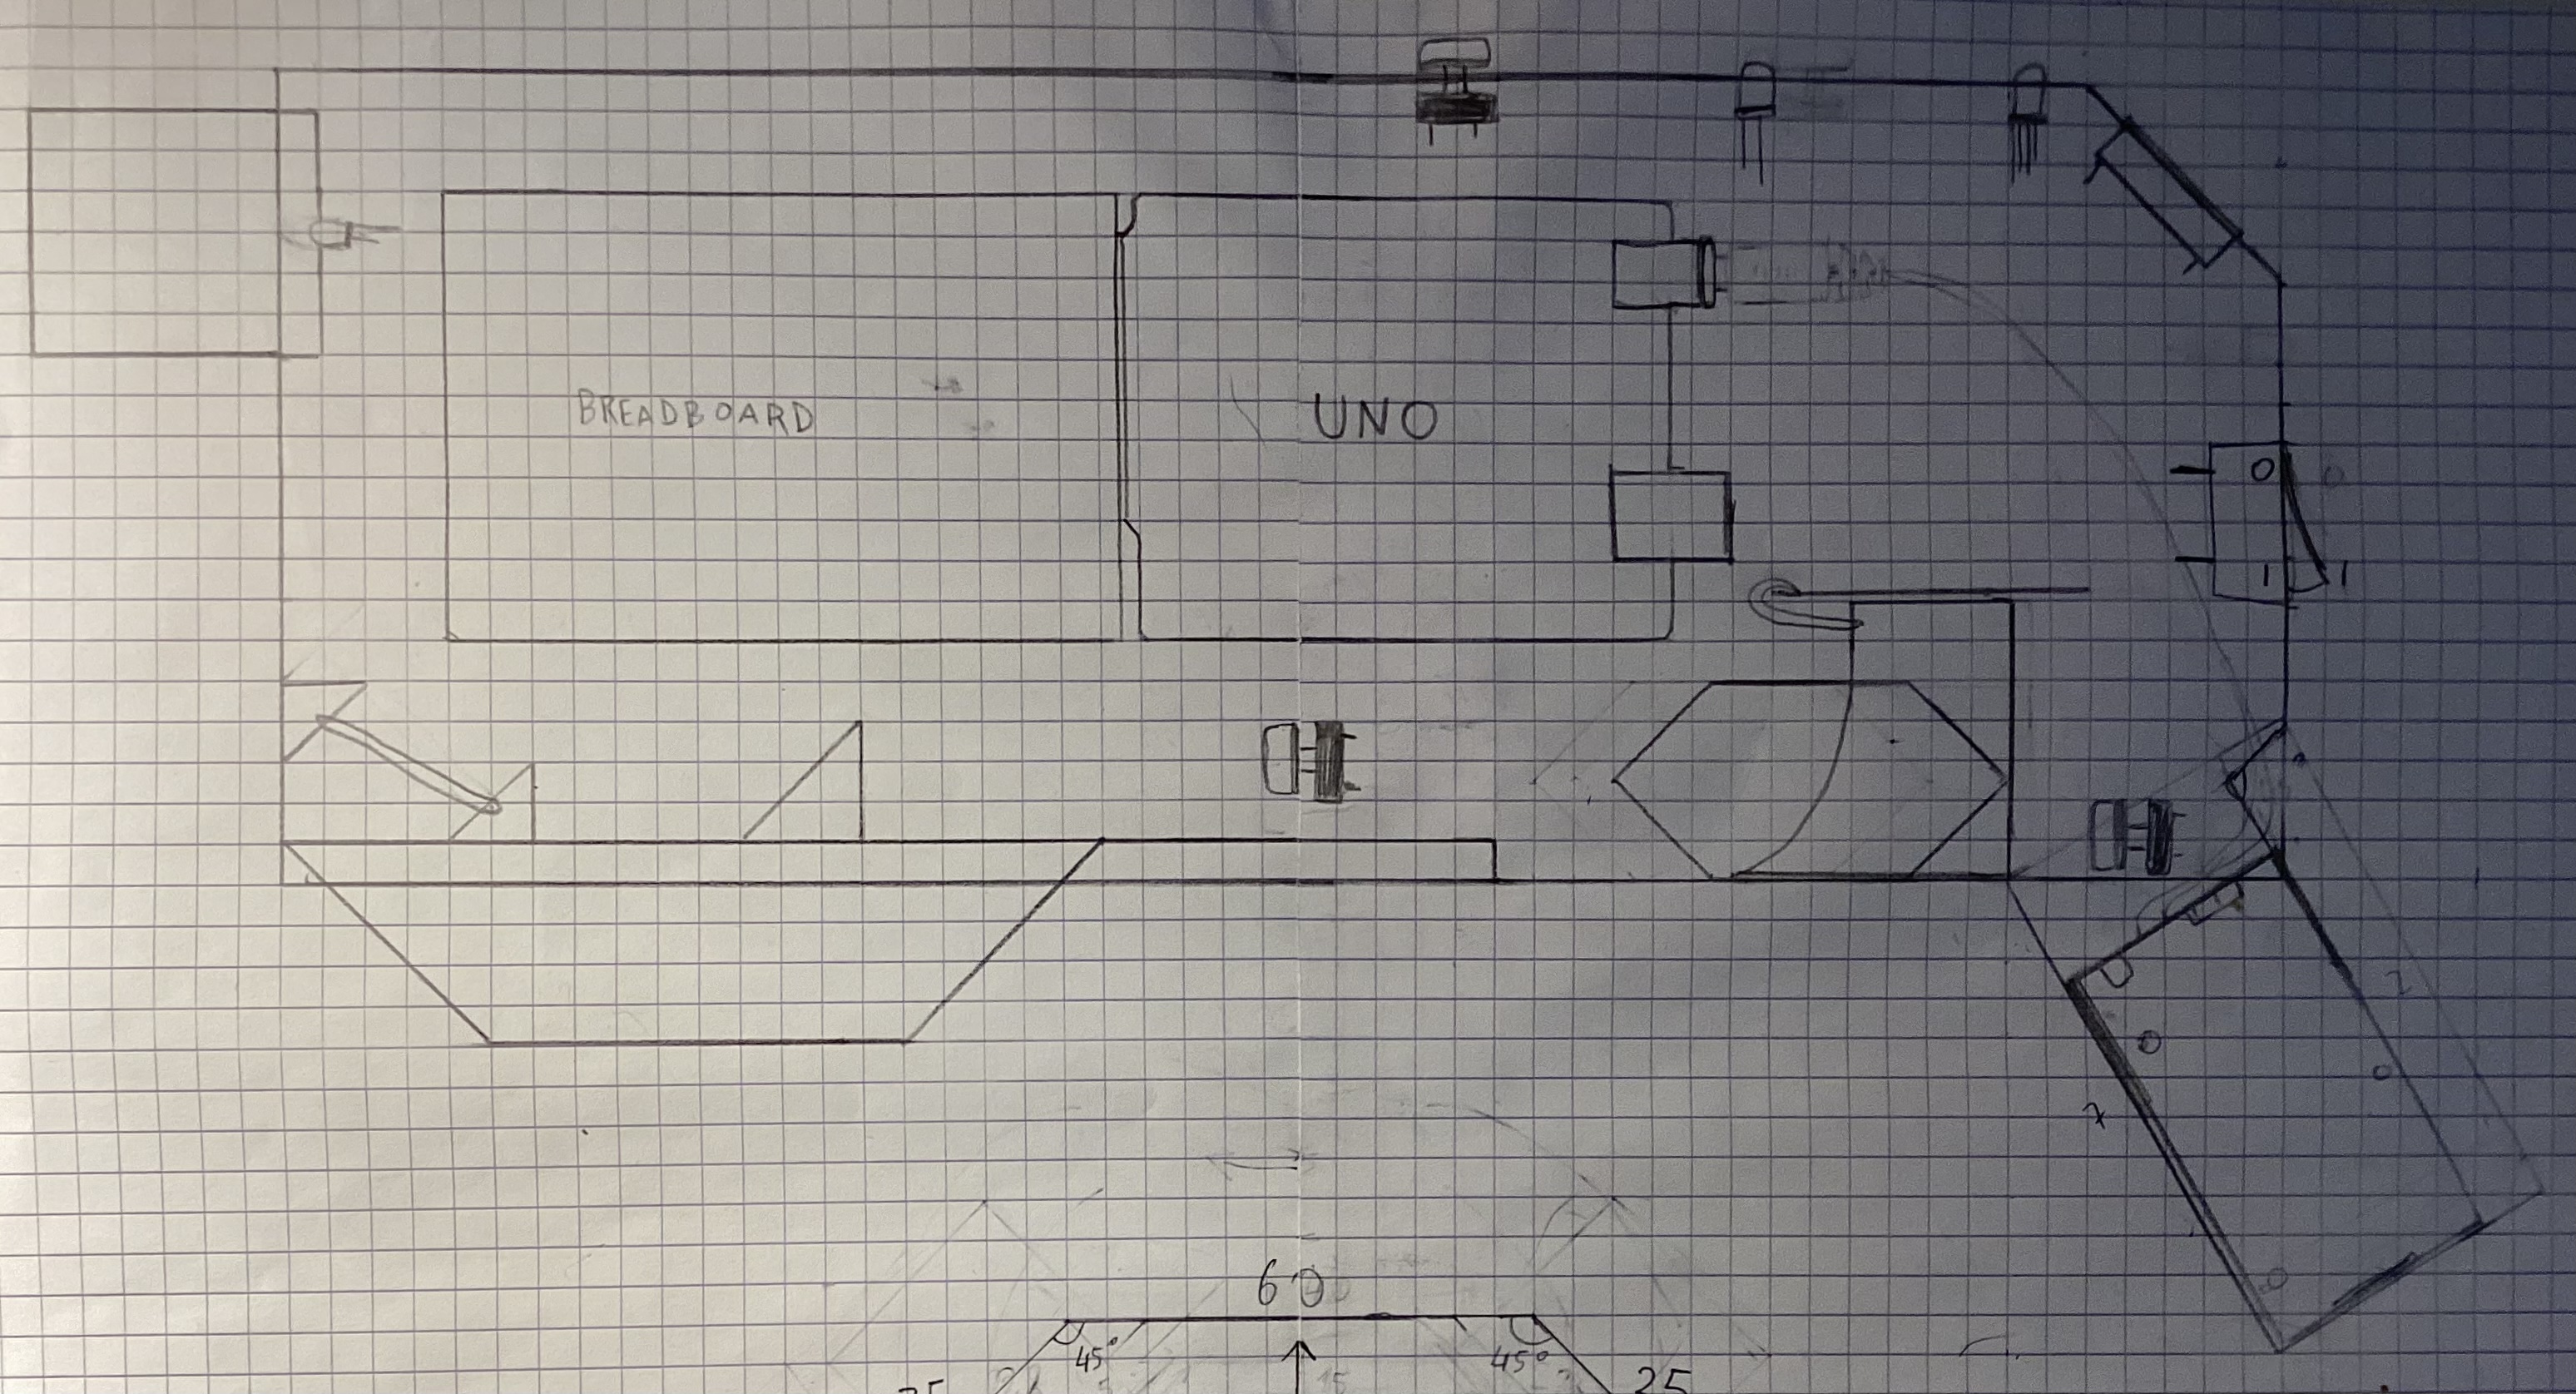 BREADBOARD
UNO
0
1 1
60
45°
45°
25